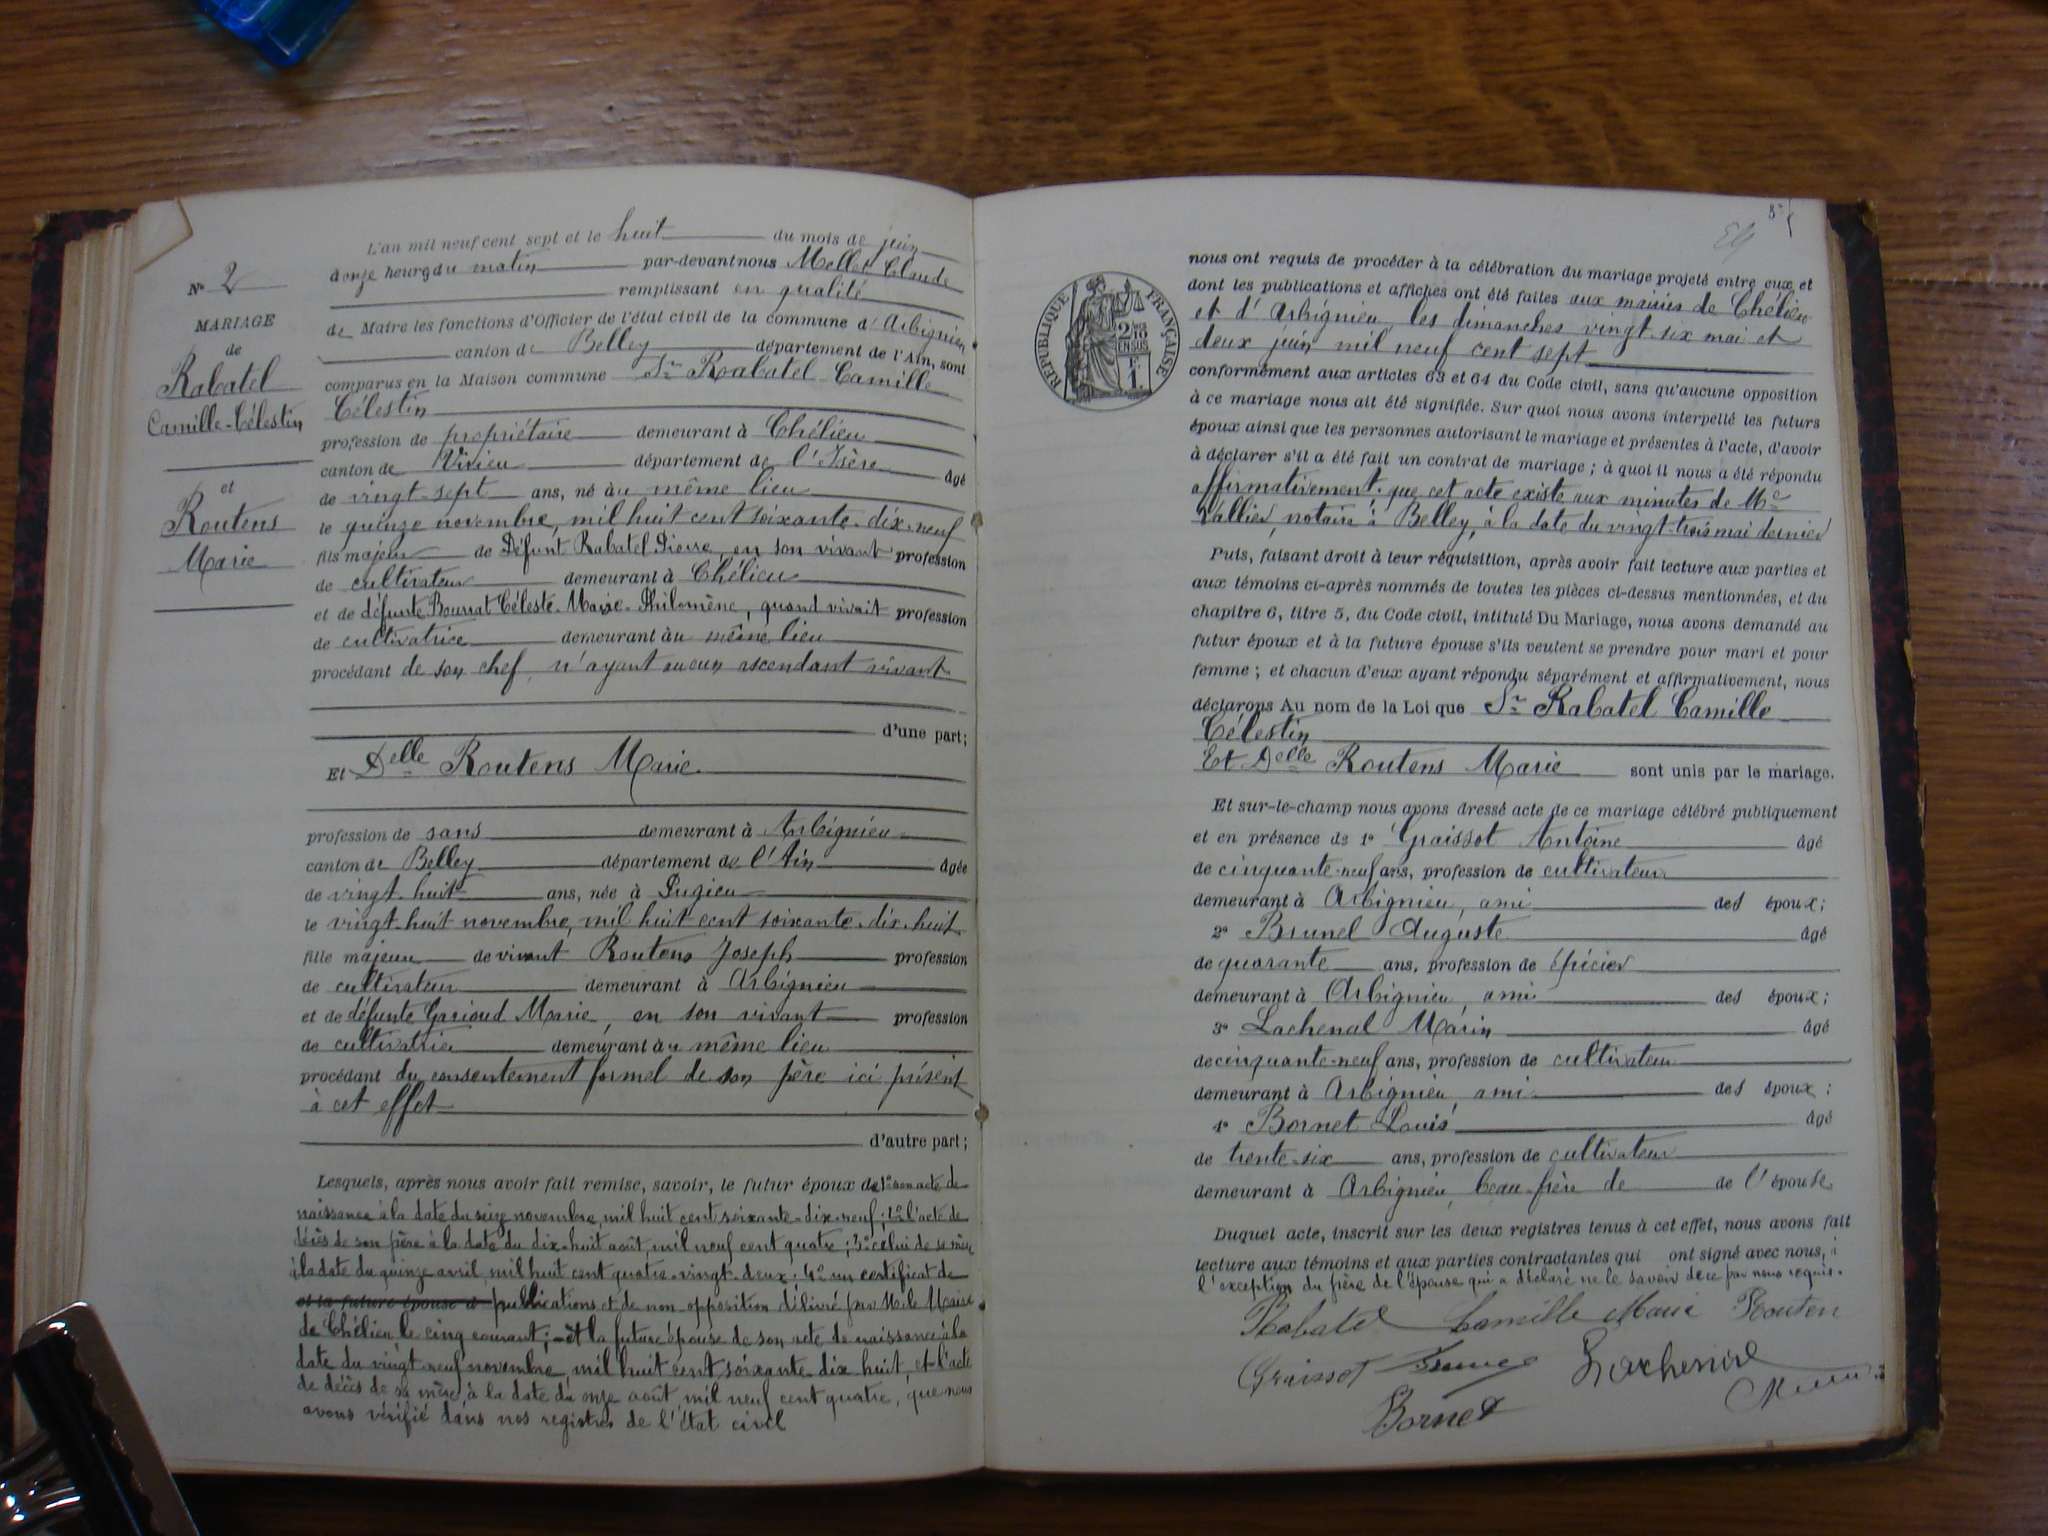 L'an mil neuf cent sept et le huit du mois de juin
à onze heures du matin par-devant nous Mollet Claude
remplissant en qualité
de Maire les fonctions d'Officier de l'état civil de la commune d'Arbignieu
canton de Belley département de l'Ain, sont
comparus en la Maison commune Sr Rabatel Camille
Célestin
profession de propriétaire demeurant à Chélieu
canton de Virieu département de l'Isère âgé
de vingt-sept ans, né au même lieu
le quinze novembre, mil huit cent soixante-dix-neuf
fils majeur de Défunt Rabatel Pierre, en son vivant profession
de cultivateur demeurant à Chélieu
et de défunte Bourrat Céleste-Marie-Philomène, quand vivait profession
de cultivatrice demeurant au même lieu
procédant de son chef, n'ayant aucun ascendant vivant
d'une part;
Et Delle Routens Marie
profession de sans demeurant à Arbignieu
canton de Belley département de l'Ain âgée
de vingt-huit ans, née à Pugieu
le vingt-huit novembre, mil huit cent soixante-dix-huit
fille majeure de vivant Routens Joseph profession
de cultivateur demeurant à Arbignieu
et de défunte Garioud Marie, en son vivant profession
de cultivatrice demeurant au même lieu
procédant du consentement formel de son père ici présent
à cet effet
d'autre part;
Lesquels, après nous avoir fait remise, savoir, le futur époux de 1° son acte de
naissance à la date du seize novembre, mil huit cent soixante-dix-neuf; 2° l'acte de
décès de son père à la date du dix-huit août, mil neuf cent quatre; 3° celui de sa mère
à la date du quinze avril, mil huit cent quatre-vingt-deux; 4° un certificat de
et la future épouse d publications et de non opposition délivré par M. le Maire
de Chélieu le cinq courant; - et la future épouse de son acte de naissance à la
date du vingt-neuf novembre, mil huit cent soixante-dix huit, et l'acte
de décès de sa mère, à la date du onze août, mil neuf cent quatre, que nous
avons vérifié dans nos registres de l'état civil
N° 2
MARIAGE
de
Rabatel
Camille-Célestin
et
Routens
Marie
RÉPUBLIQUE FRANÇAISE
2/10
EN SUS
1F
nous ont requis de procéder à la célébration du mariage projeté entre eux et
dont les publications et affiches ont été faites aux mairies de Chélieu
et d'Arbignieu, les dimanches vingt six mai et
deux juin mil neuf cent sept
conformément aux articles 63 et 64 du Code civil, sans qu'aucune opposition
à ce mariage nous ait été signifiée. Sur quoi nous avons interpellé les futurs
époux ainsi que les personnes autorisant le mariage et présentes à l'acte, d'avoir
à déclarer s'il a été fait un contrat de mariage; à quoi il nous a été répondu
affirmativement, que cet acte existe aux minutes de Me
Vallier, notaire à Belley, à la date du vingt-trois mai dernier
Puis, faisant droit à leur réquisition, après avoir fait lecture aux parties et
aux témoins ci-après nommés de toutes les pièces ci-dessus mentionnées, et du
chapitre 6, titre 5, du Code civil, intitulé Du Mariage, nous avons demandé au
futur époux et à la future épouse s'ils veulent se prendre pour mari et pour
femme; et chacun d'eux ayant répondu séparément et affirmativement, nous
déclarons Au nom de la Loi que Sr Rabatel Camille
Célestin
Et Delle Routens Marie sont unis par le mariage.
Et sur-le-champ nous avons dressé acte de ce mariage célébré publiquement
et en présence de 1° Graissot Antoine âgé
de cinquante-neuf ans, profession de cultivateur
demeurant à Arbignieu, ami des époux;
2° Brunel Auguste âgé
de quarante ans, profession de épicier
demeurant à Arbignieu, ami des époux;
3° Lachenal Marin âgé
de cinquante-neuf ans, profession de cultivateur
demeurant à Arbignieu, ami des époux;
4° Bornet Louis âgé
de trente-six ans, profession de cultivateur
demeurant à Arbignieu, beau-frère de de l'épouse
Duquel acte, inscrit sur les deux registres tenus à cet effet, nous avons fait
lecture aux témoins et aux parties contractantes qui ont signé avec nous, à
l'exception du père de l'épouse qui a déclaré ne le savoir de ce par nous requis.
Rabatel Camille Marie Routen
Graissot
Bornet